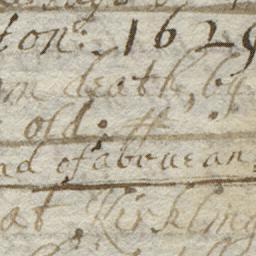 ton: 1629
m death, by
old.
nd of aboue an
at Kirkling